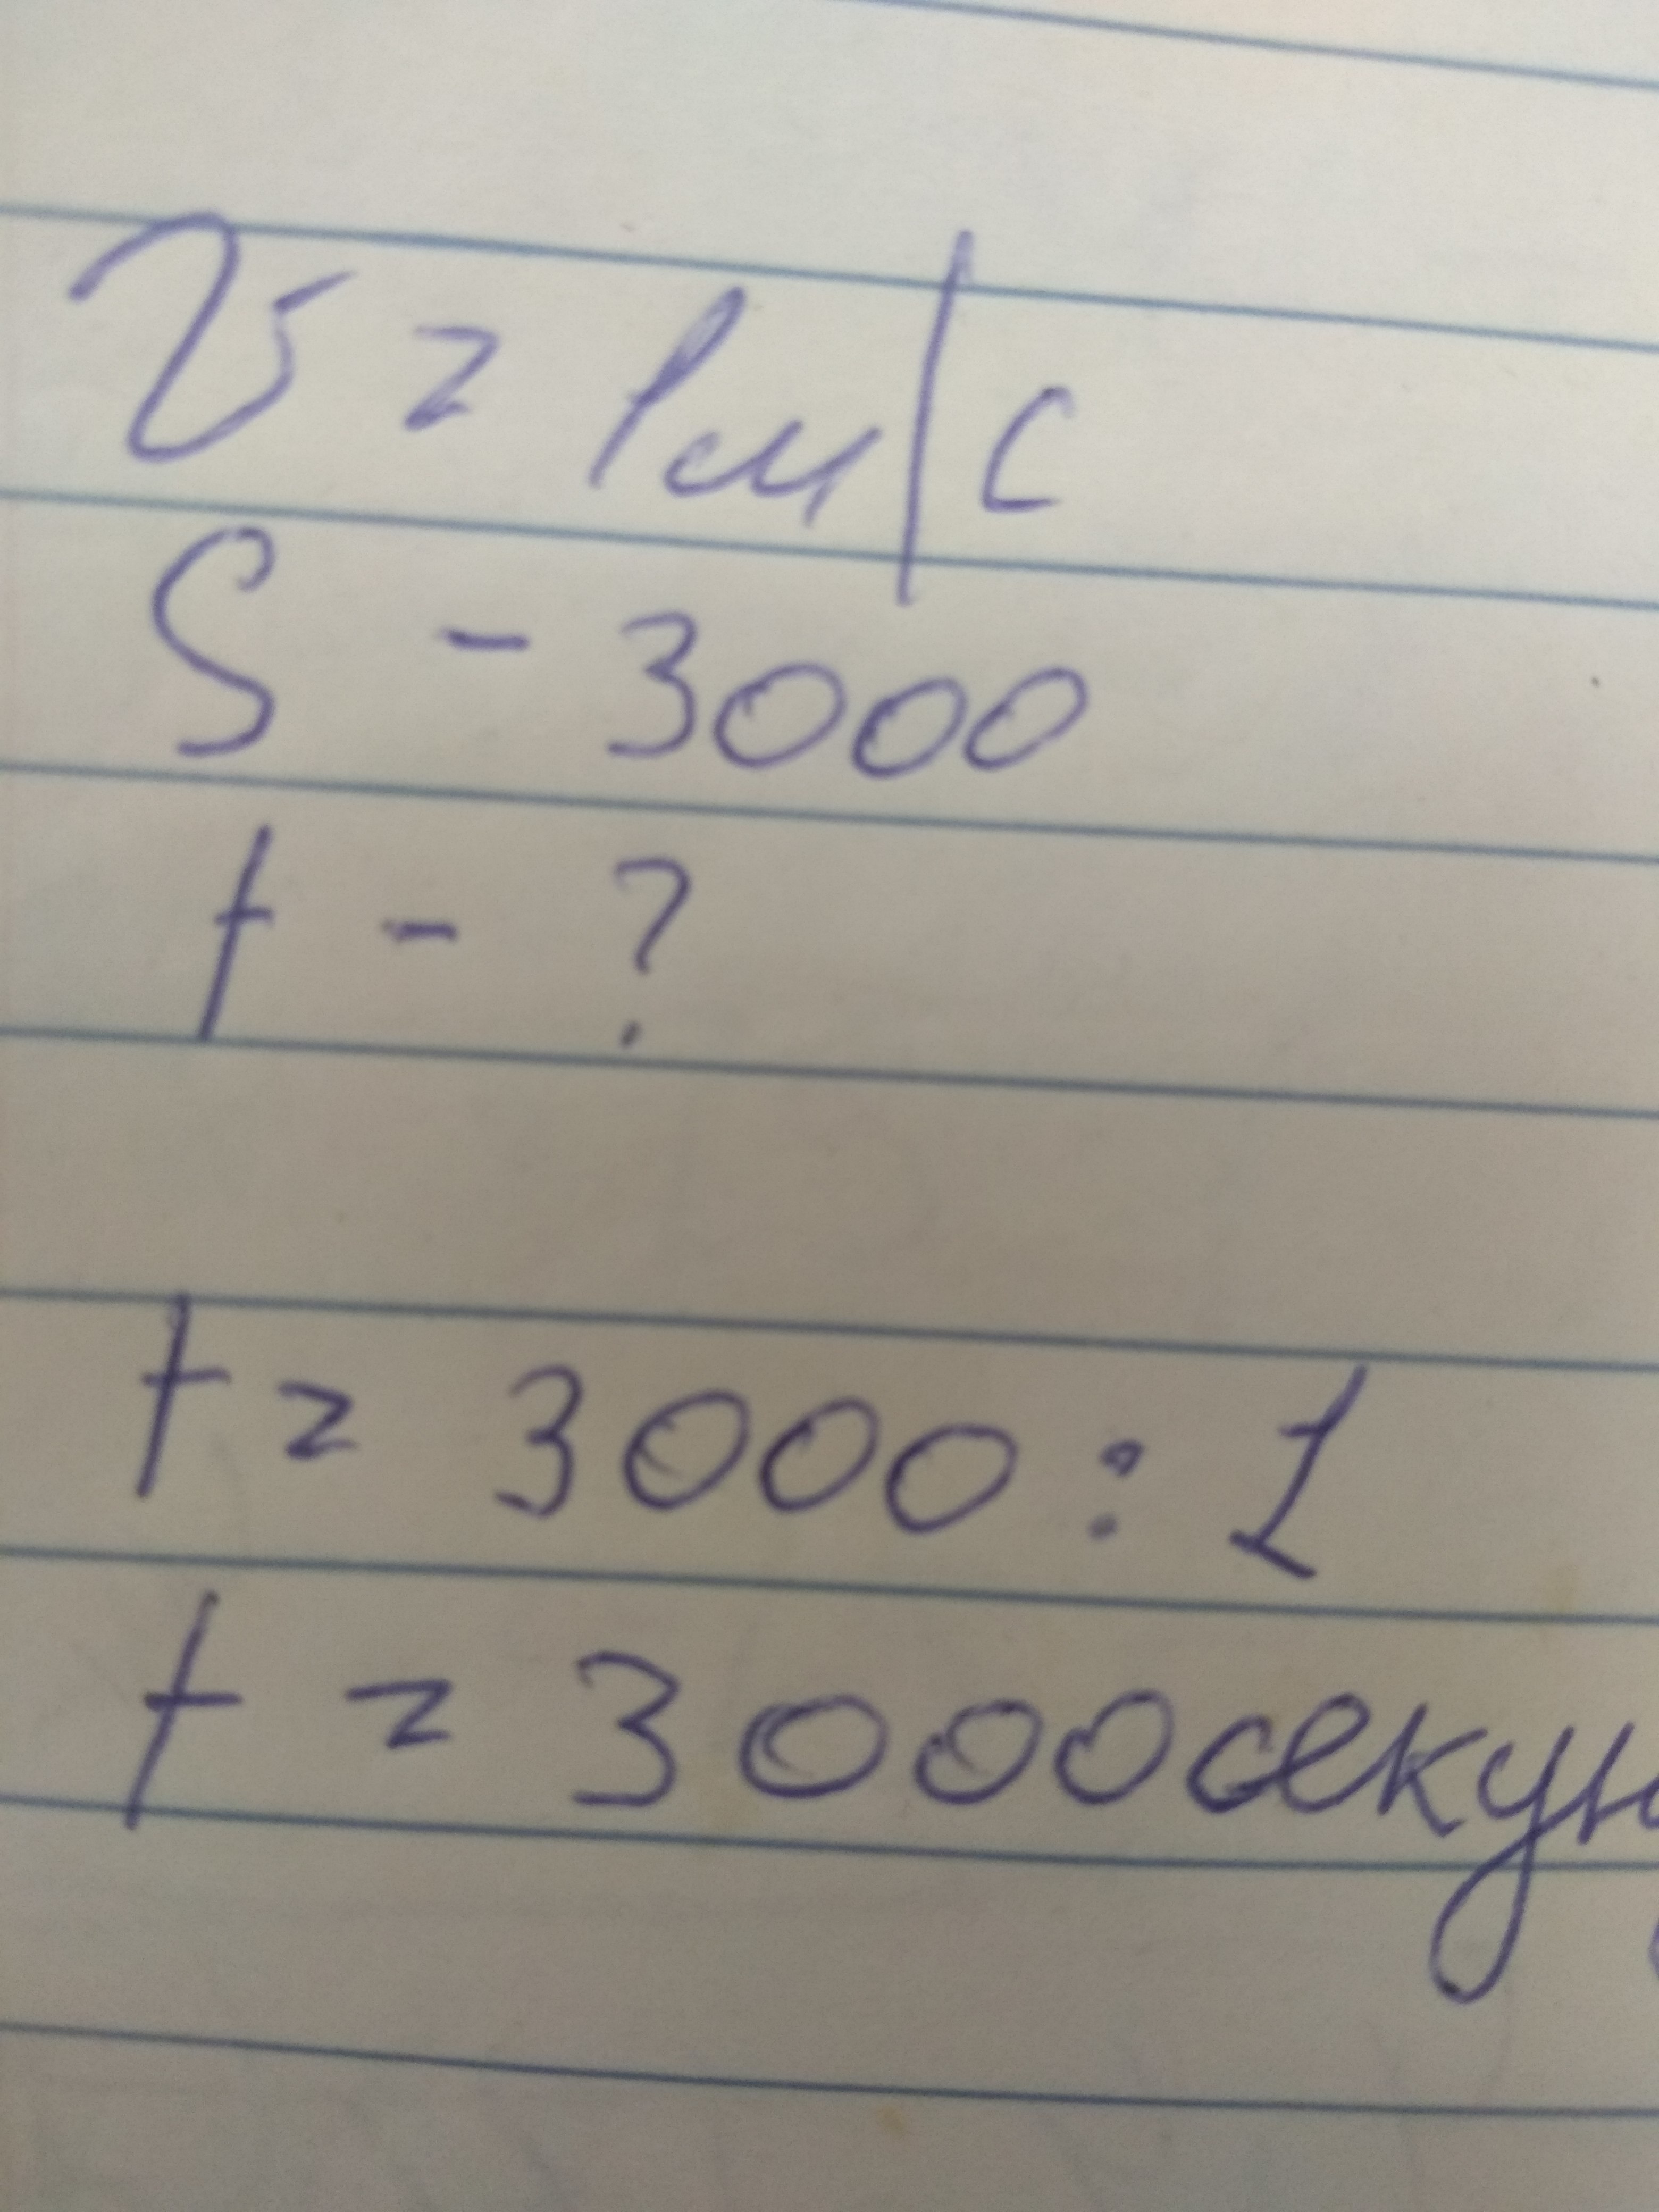 V = 1см/с
S - 3000
t - ?
t = 3000 : 1
t = 3000секун